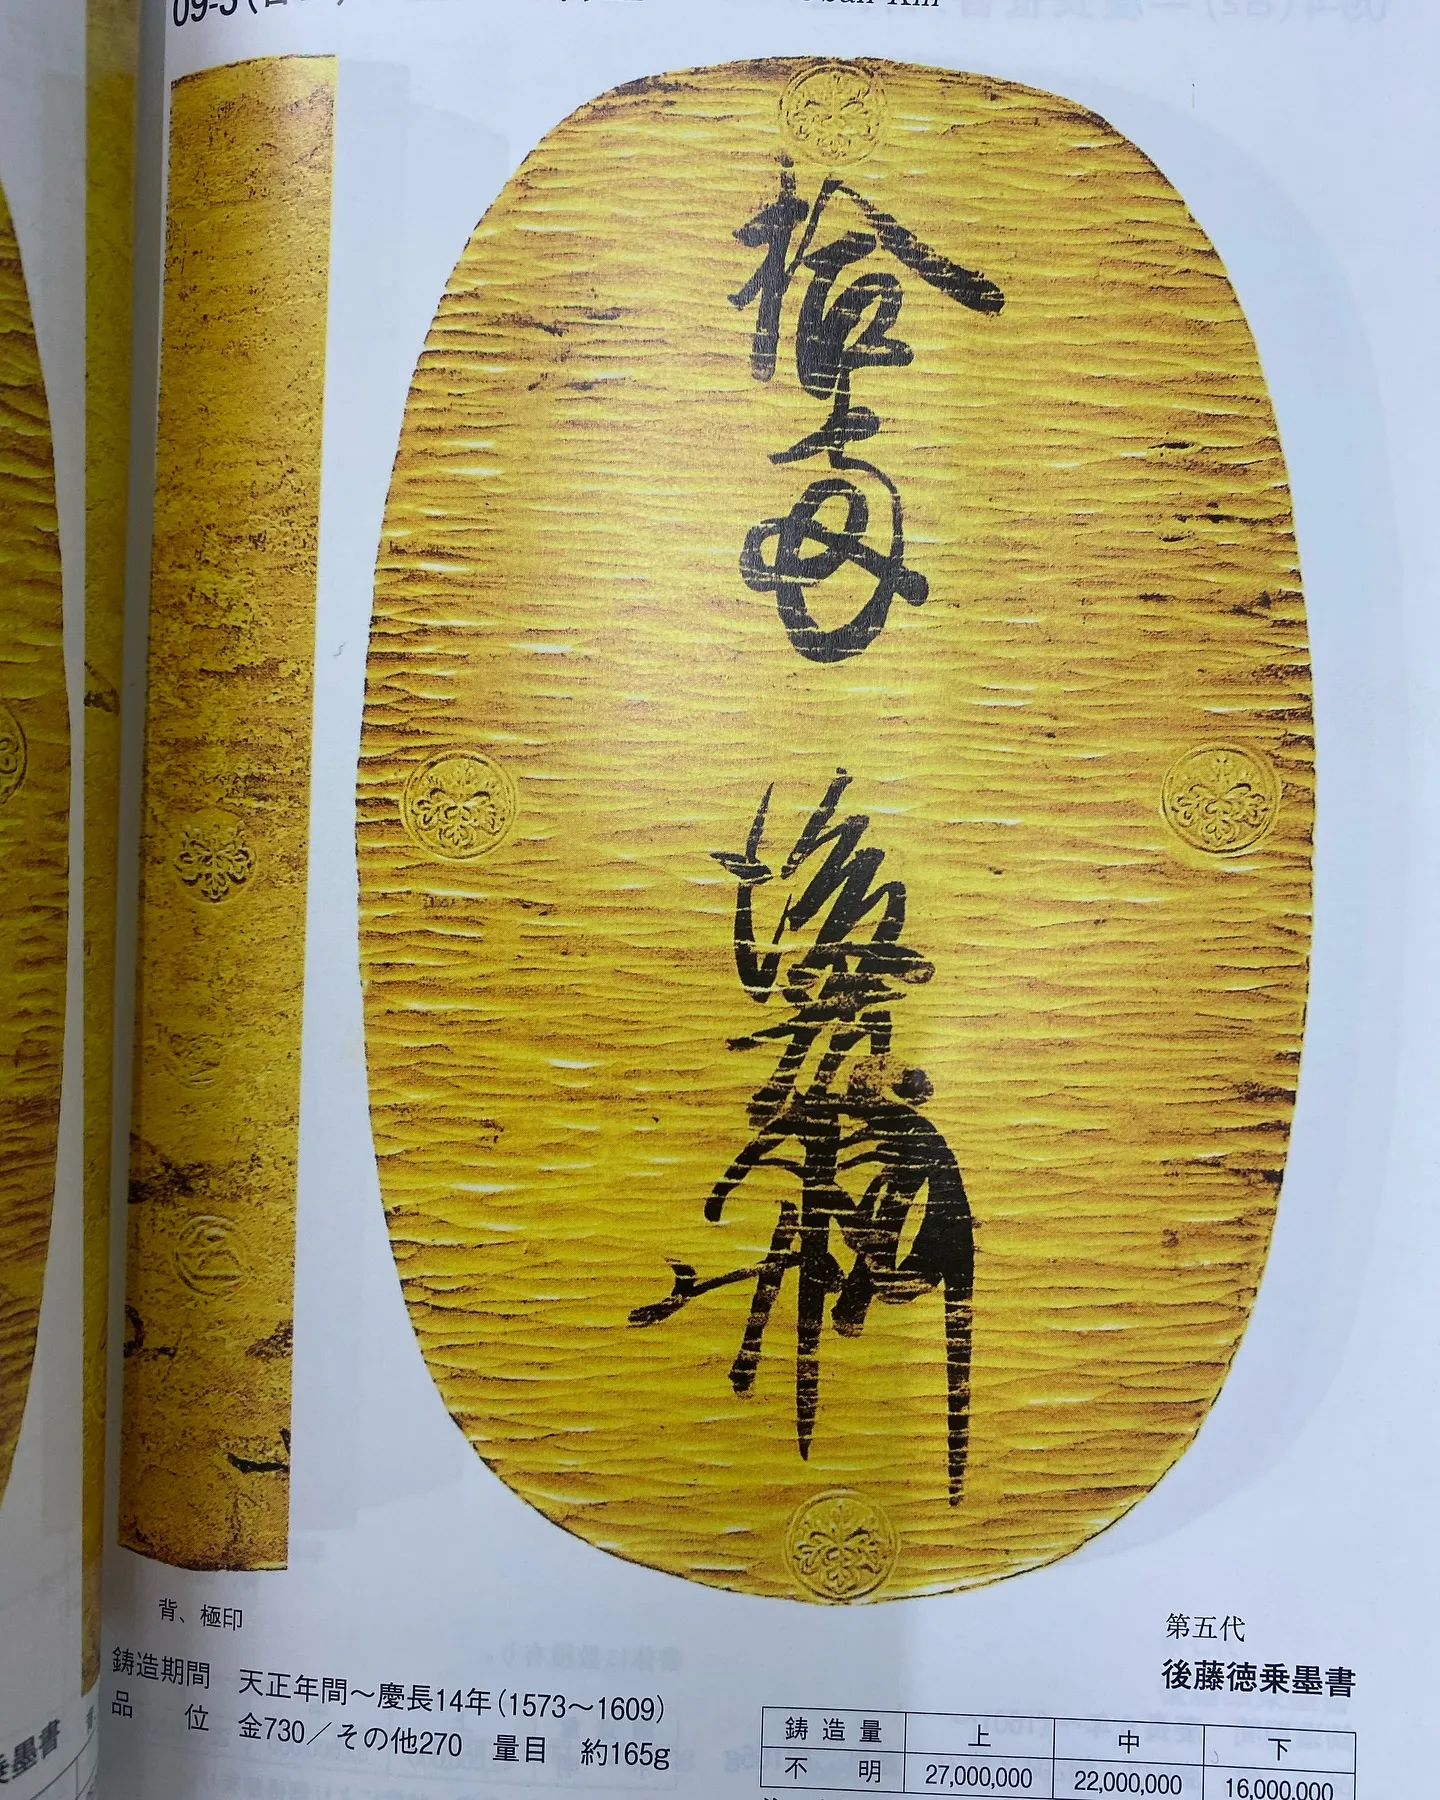 09-5
oban Kin
拾両
後藤
背、極印
鋳造期間 天正年間～慶長14年(1573～1609)
品位 金730／その他270 量目 約165g
第五代
後藤徳乗墨書
鋳造量 上 中 下
不明 27,000,000 22,000,000 16,000,000
乗墨書